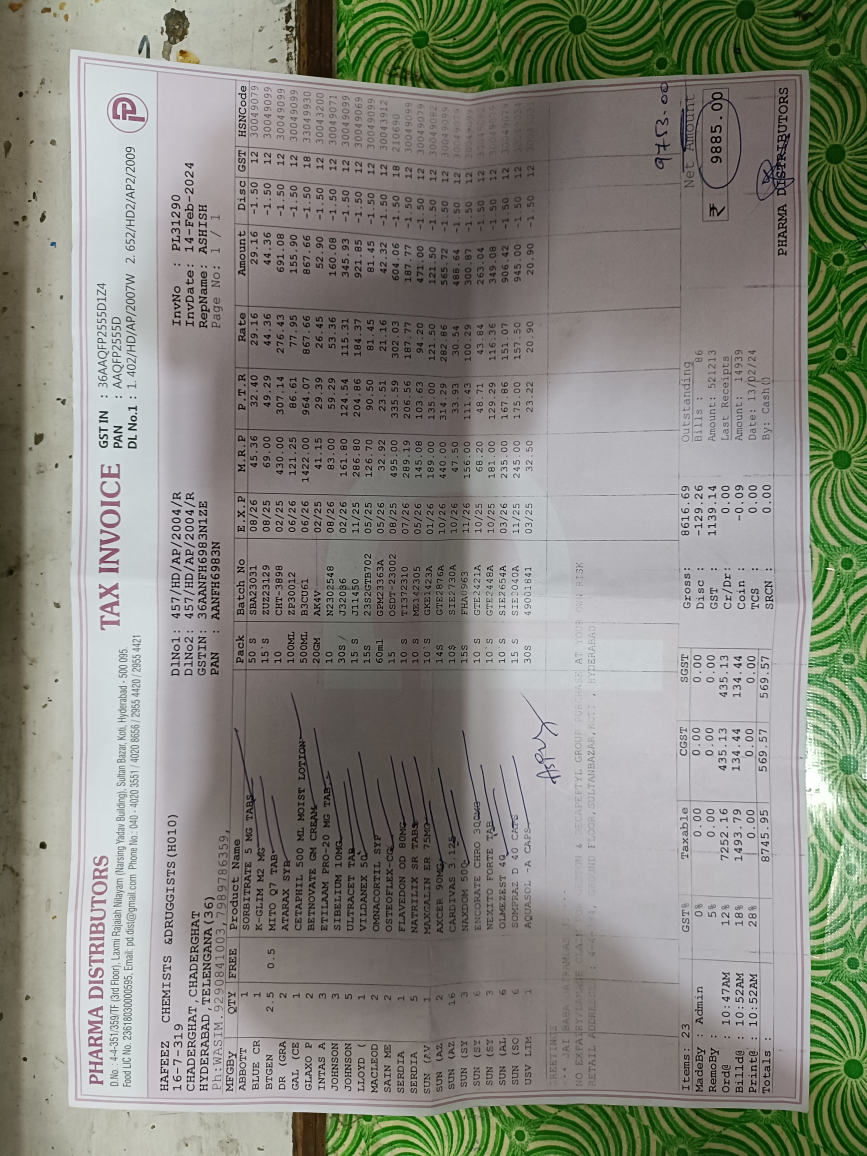 PHARMA DISTRIBUTORS
TAX INVOICE
D.No.: 4-4-351/359/TF (3rd Floor), Laxmi Rajaiah Nilayam (Narsing Yadav Building), Sultan Bazar, Koti, Hyderabad - 500 095.
Food LIC No. 23618030000595, Email: pd.dist@gmail.com Phone No.: 040 - 4020 3551 / 4020 8656 / 2955 4420 / 2955 4421
GST IN : 36AAQFP2555D1Z4
PAN : AAQFP2555D
DL No.1 : 1. 402/HD/AP/2007W 2. 652/HD2/AP2/2009
HAFEEZ CHEMISTS &DRUGGISTS(H010)
16-7-319
CHADERGHAT, CHADERGHAT
HYDERABAD, TELENGANA(36)
Ph:WASIM.9290841003,7989786359,
DlNo1: 457/HD/AP/2004/R
DlNo2: 457/HD/AP/2004/R
GSTIN: 36AANFH6983N1ZE
PAN : AANFH6983N
InvNo : PL31290
InvDate: 14-Feb-2024
RepName: ASHISH
Page No: 1 / 1
MFGBy QTY FREE Product Name Pack Batch No E.X.P M.R.P P.T.R Rate Amount Disc GST HSNCode
ABBOTT 1 SORBITRATE 5 MG TABS 50 S SBA23031 08/26 45.36 32.40 29.16 29.16 -1.50 12 30049079
BLUE CR 1 K-GLIM M2 MG 15 S ZU223129 08/25 69.00 49.29 44.36 44.36 -1.50 12 30049099
BTGEN 2.5 0.5 MITO Q7 TAB 10 CHT-3898 02/25 430.00 307.14 276.43 691.08 -1.50 12 30049099
DR (GRA 2 ATARAX SYR 100ML ZP30012 06/26 121.25 86.61 77.95 155.90 -1.50 12 30049099
GAL (CE 1 CETAPHIL 500 ML MOIST LOTION 500ML B3CU61 06/26 1422.00 964.07 867.66 867.66 -1.50 18 33049930
GLAXO P 2 BETNOVATE GM CREAM 20GM AK4V 02/25 41.15 29.39 26.45 52.90 -1.50 12 30043200
INTAS A 3 ETILAAM PRO-20 MG TAB 10 N2302548 08/26 83.00 59.29 53.36 160.08 -1.50 12 30049071
JOHNSON 3 SIBELIUM 10MG 30S / J32036 02/26 161.80 124.54 115.31 345.93 -1.50 12 30049099
JOHNSON 5 ULTRACET TAB 15 S J11450 11/25 286.80 204.86 184.37 921.85 -1.50 12 30049069
LLOYD ( 1 VILDANEX 50 15S 23S2GTB702 05/25 126.70 90.50 81.45 81.45 -1.50 12 30049099
MACLEOD 2 OMNACORTIL SYP 60ml GPM23363A 05/25 32.92 23.51 21.16 42.32 -1.50 12 30043912
SAIN ME 2 OSTEOFLEX-CG 15 OSDT-2302 08/25 495.00 335.59 302.03 604.06 -1.50 18 210690
SERDIA 1 FLAVEDON OD 80MG 10 S TI372310 07/26 289.19 206.56 187.77 187.77 -1.50 12 30049099
SERDIA 5 NATRILIX SR TABS 10 S ME142305 05/26 145.08 103.63 94.20 471.00 -1.50 12 30049079
SUN (AV 1 MAXGALIN ER 75MG 10 S GKE1423A 01/26 189.00 135.00 121.50 121.50 -1.50 12
SUN (AZ 2 AXCER 90MG 14S GTE2876A 10/26 440.00 314.29 282.86 565.72 -1.50 12
SUN (AZ 16 CARDIVAS 3.125 10S SIE2730A 10/26 47.50 33.93 30.54 488.64 -1.50 12
SUN (SY 3 NAXDOM 500 15S FHA0963 11/26 156.00 111.43 100.29 300.87 -1.50 12
SUN (SY 6 ENCORATE CHRO 300MG 10 S GTE2421A 10/25 68.20 48.71 43.84 263.04 -1.50 12
SUN (SY 3 NEXITO FORTE TAB 10 S GTE2448A 10/25 181.00 129.29 116.36 349.08 -1.50 12
SUN (AL 6 OLMEZEST 40 10 S SIE2654A 03/26 235.00 167.86 151.07 906.42 -1.50 12
SUN (SO 6 SOMPRAZ D 40 CAPS 15 S SIE2040A 11/25 245.00 175.00 157.50 945.00 -1.50 12
USV LIM 1 AQUASOL -A CAPS 30S 49001841 03/25 32.50 23.22 20.90 20.90 -1.50 12
Items: 23
MadeBy : Admin
RemoBy :
Ord@ : 10:47AM
Billd@ : 10:52AM
Print@ : 10:52AM
Totals :
GST% Taxable CGST SGST
0% 0.00 0.00 0.00
5% 0.00 0.00 0.00
12% 7252.16 435.13 435.13
18% 1493.79 134.44 134.44
28% 0.00 0.00 0.00
8745.95 569.57 569.57
Gross: 8616.69
Disc : -129.26
GST 1139.14
Cr/Dr: 0.00
Coin : -0.09
TCS : 0.00
SRCN : 0.00
Outstanding
Bills : 86
Amount: 521213
Last Receipts
Amount: 14939
Date: 13/02/24
By: Cash()
9753.00
Net Amount
₹ 9885.00
PHARMA DISTRIBUTORS